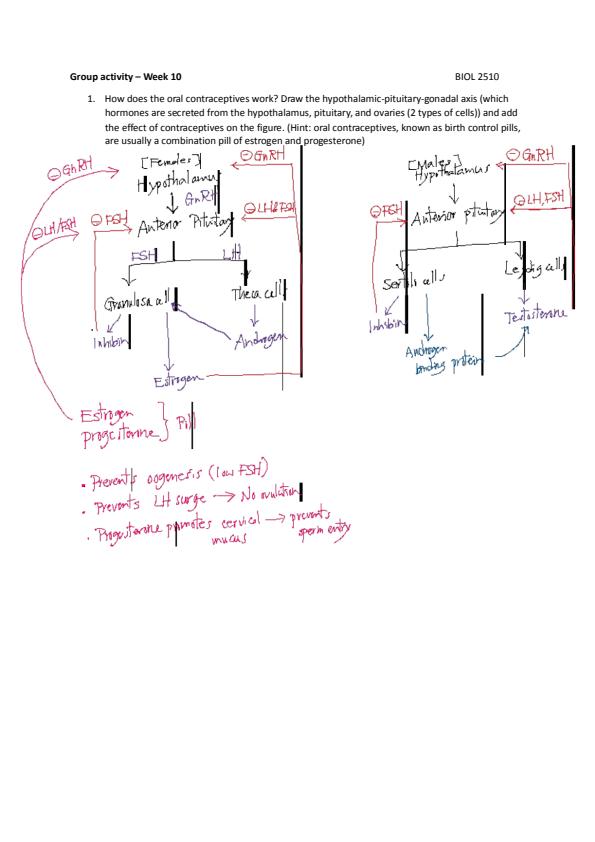 Group activity – Week 10
BIOL 2510
1. How does the oral contraceptives work? Draw the hypothalamic-pituitary-gonadal axis (which
hormones are secreted from the hypothalamus, pituitary, and ovaries (2 types of cells)) and add
the effect of contraceptives on the figure. (Hint: oral contraceptives, known as birth control pills,
are usually a combination pill of estrogen and progesterone)
[Females]
⊖GnRH
⊖GnRH
Hypothalamus
GnRH
⊖LH/FSH
⊖FSH
Anterior Pituitary
⊖LH&FSH
FSH
LH
Granulosa cell
Theca cell
Inhibin
Androgen
Estrogen
Estrogen
progesterone
} Pill
• Prevents oogenesis (low FSH)
• Prevents LH surge → No ovulation
• Progesterone promotes cervical → prevents
mucus
sperm entry
[Males]
⊖GnRH
Hypothalamus
⊖FSH
Anterior pituitary
⊖LH,FSH
Sertoli cells
Leydig cells
Inhibin
Testosterone
Androgen
binding protein